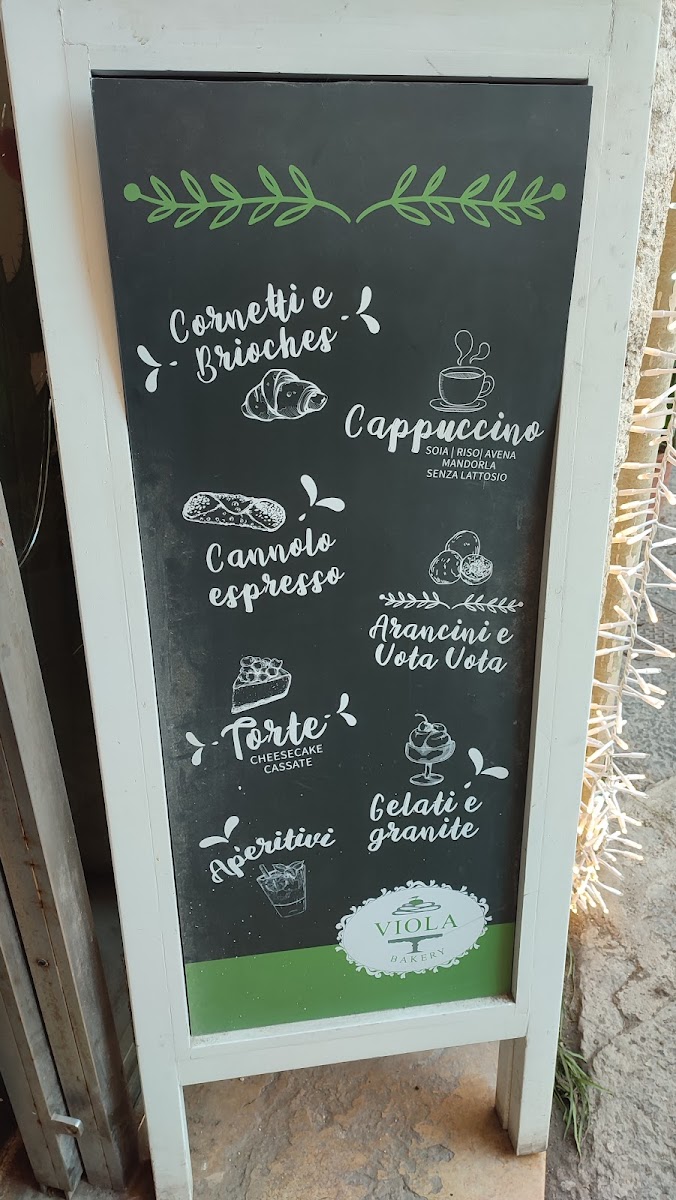 Cornetti e
Brioches
Cappuccino
SOIA | RISO| AVENA
MANDORLA
SENZA LATTOSIO
Cannolo
espresso
Arancini e
Vota Vota
Torte
CHEESECAKE
CASSATE
Gelati e
granite
Aperitivi
VIOLA
BAKERY